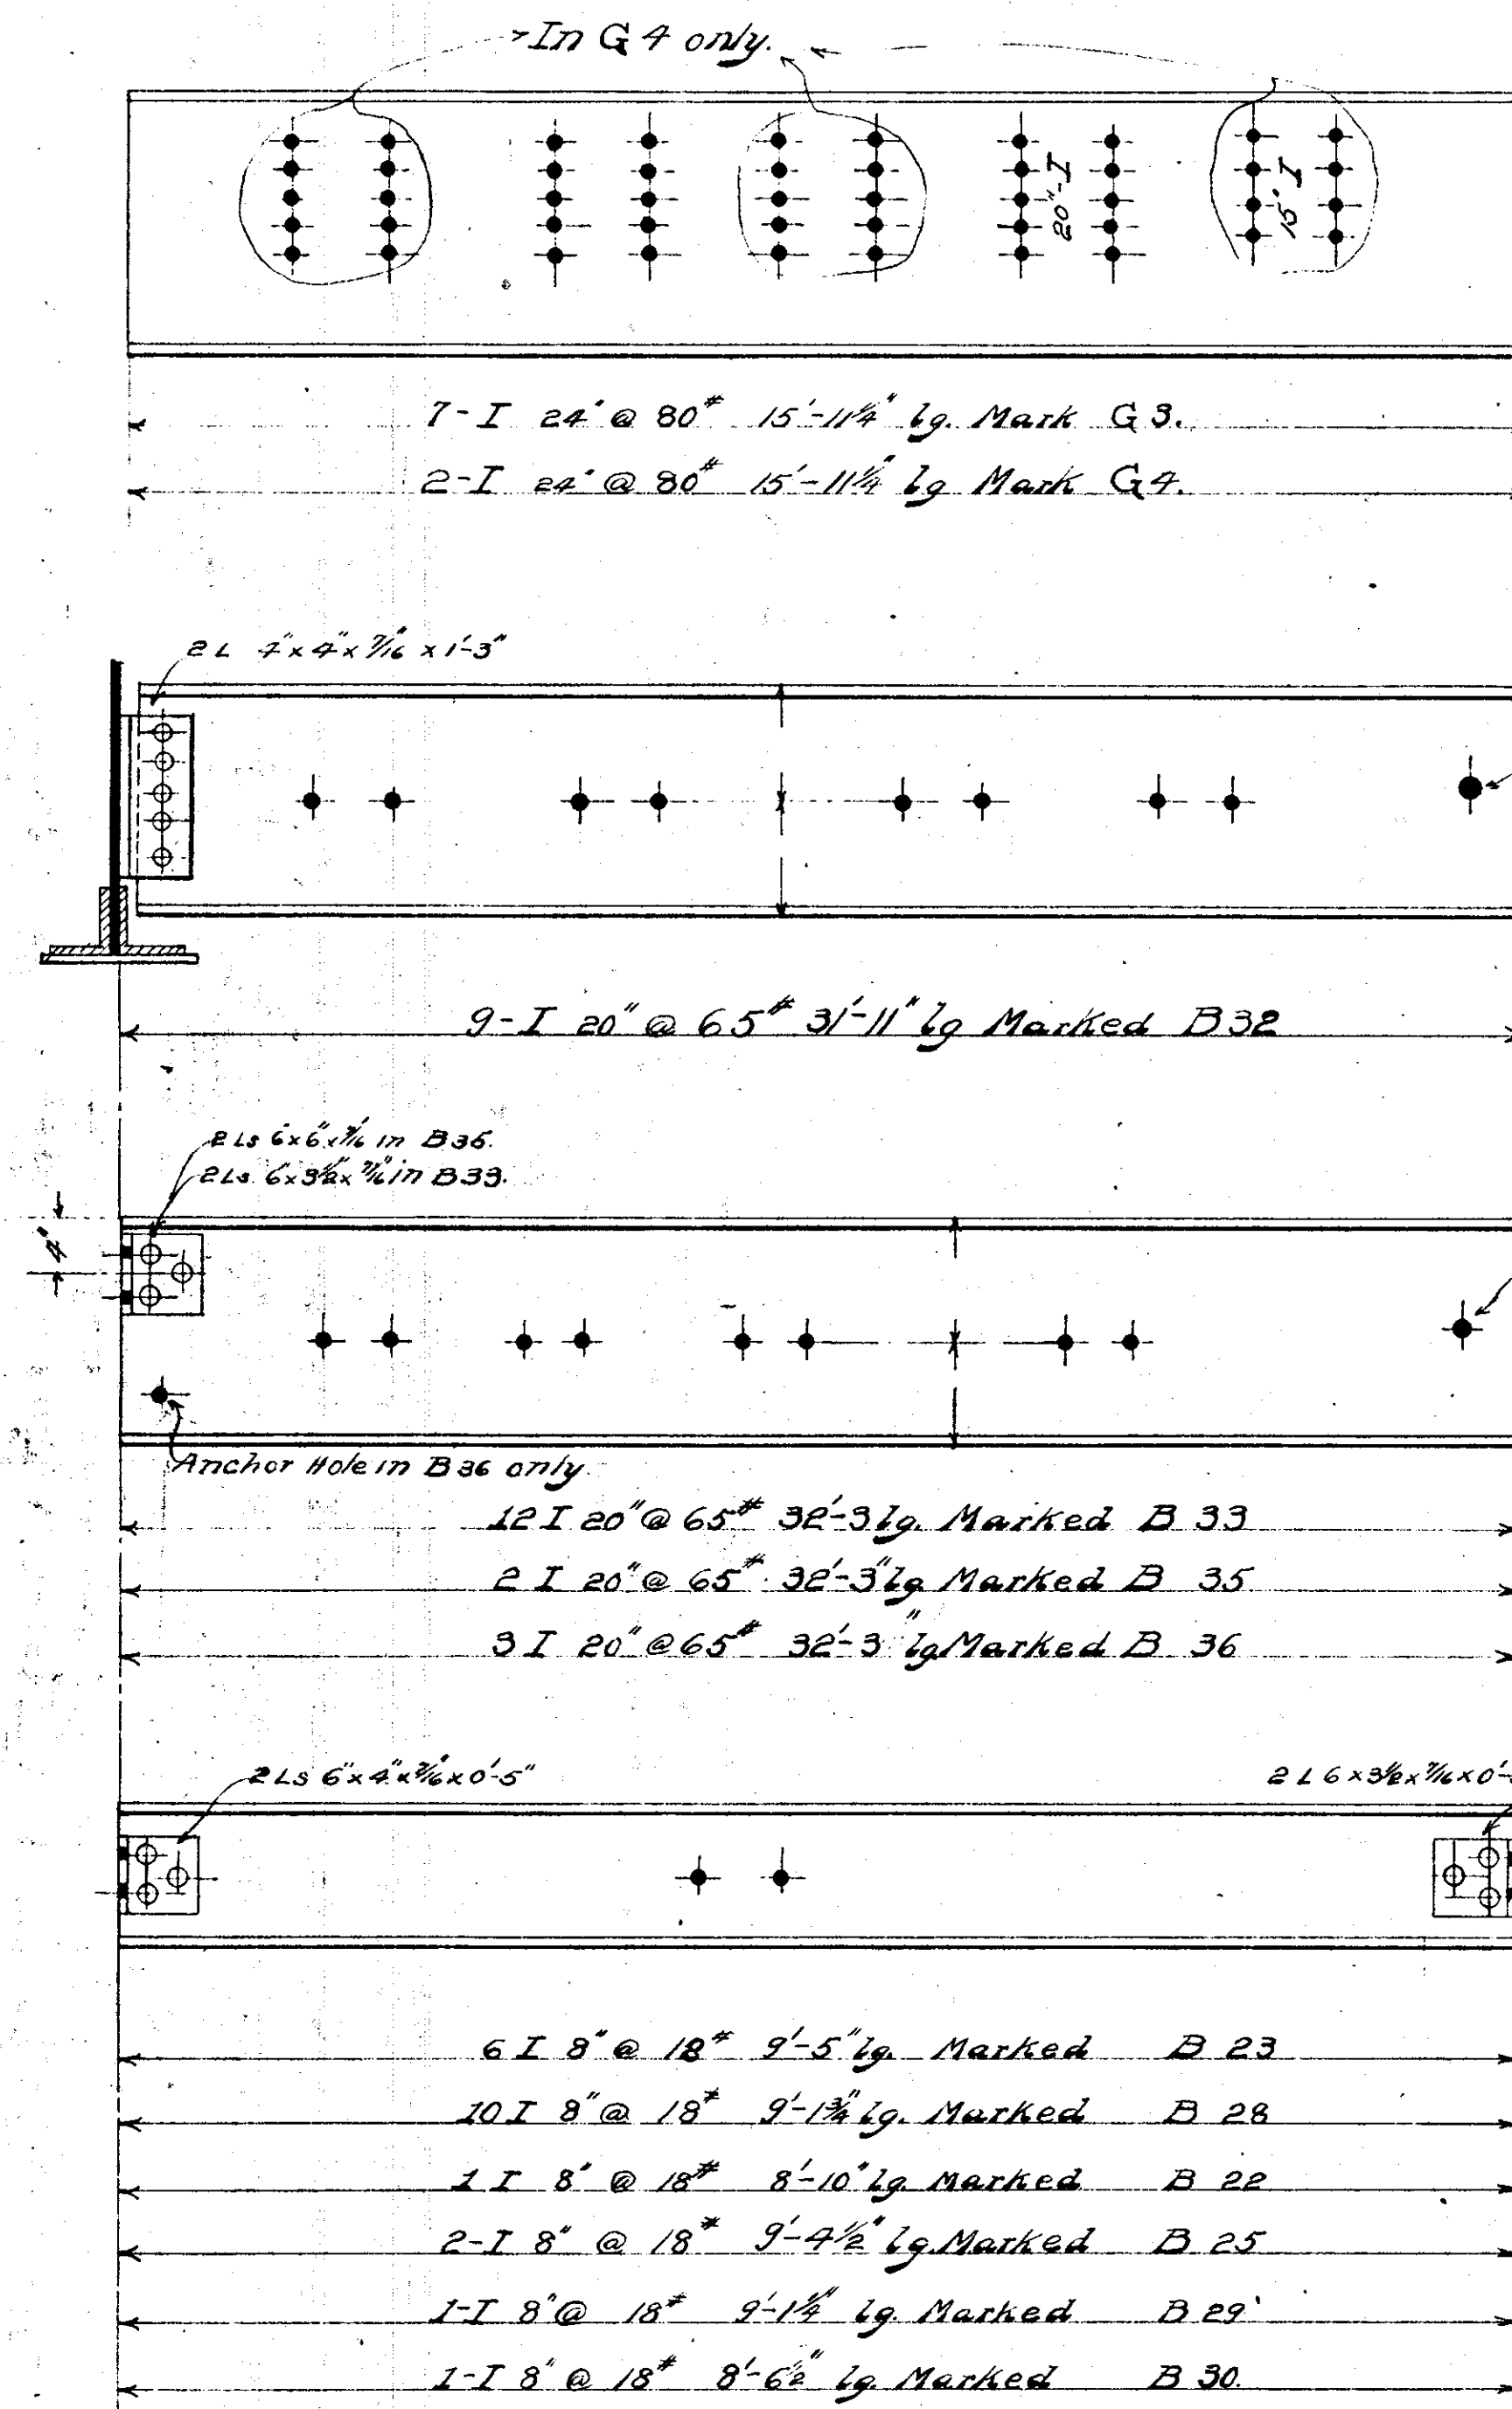 In G 4 only.
20"-I
15" I
7-I 24" @ 80# 15'-11¼" lg. Mark G 3.
2-I 24" @ 80# 15'-11¼" lg Mark G4.
2 L 4"x4"x7/16"x1'-3"
9-I 20" @ 65# 31'-11" lg Marked B32
2 Ls 6"x6"x7/16" in B35.
2 Ls. 6x3½x7/16" in B33.
4"
Anchor Hole in B36 only
12 I 20" @ 65# 32'-3 lg. Marked B 33
2 I 20" @ 65# 32'-3" lg Marked B 35
3 I 20" @ 65# 32'-3" lg Marked B 36
2 Ls 6"x4"x7/16"x0'-5"
2 L 6x3½x7/16x0'-
6 I 8" @ 18# 9'-5" lg. Marked B 23
10 I 8" @ 18# 9'-1¾" lg. Marked B 28
1 I 8" @ 18# 8'-10" lg. Marked B 22
2-I 8" @ 18# 9'-4½" lg. Marked B 25
1-I 8" @ 18# 9'-1¼" lg. Marked B 29
1-I 8" @ 18# 8'-6½" lg. Marked B 30.